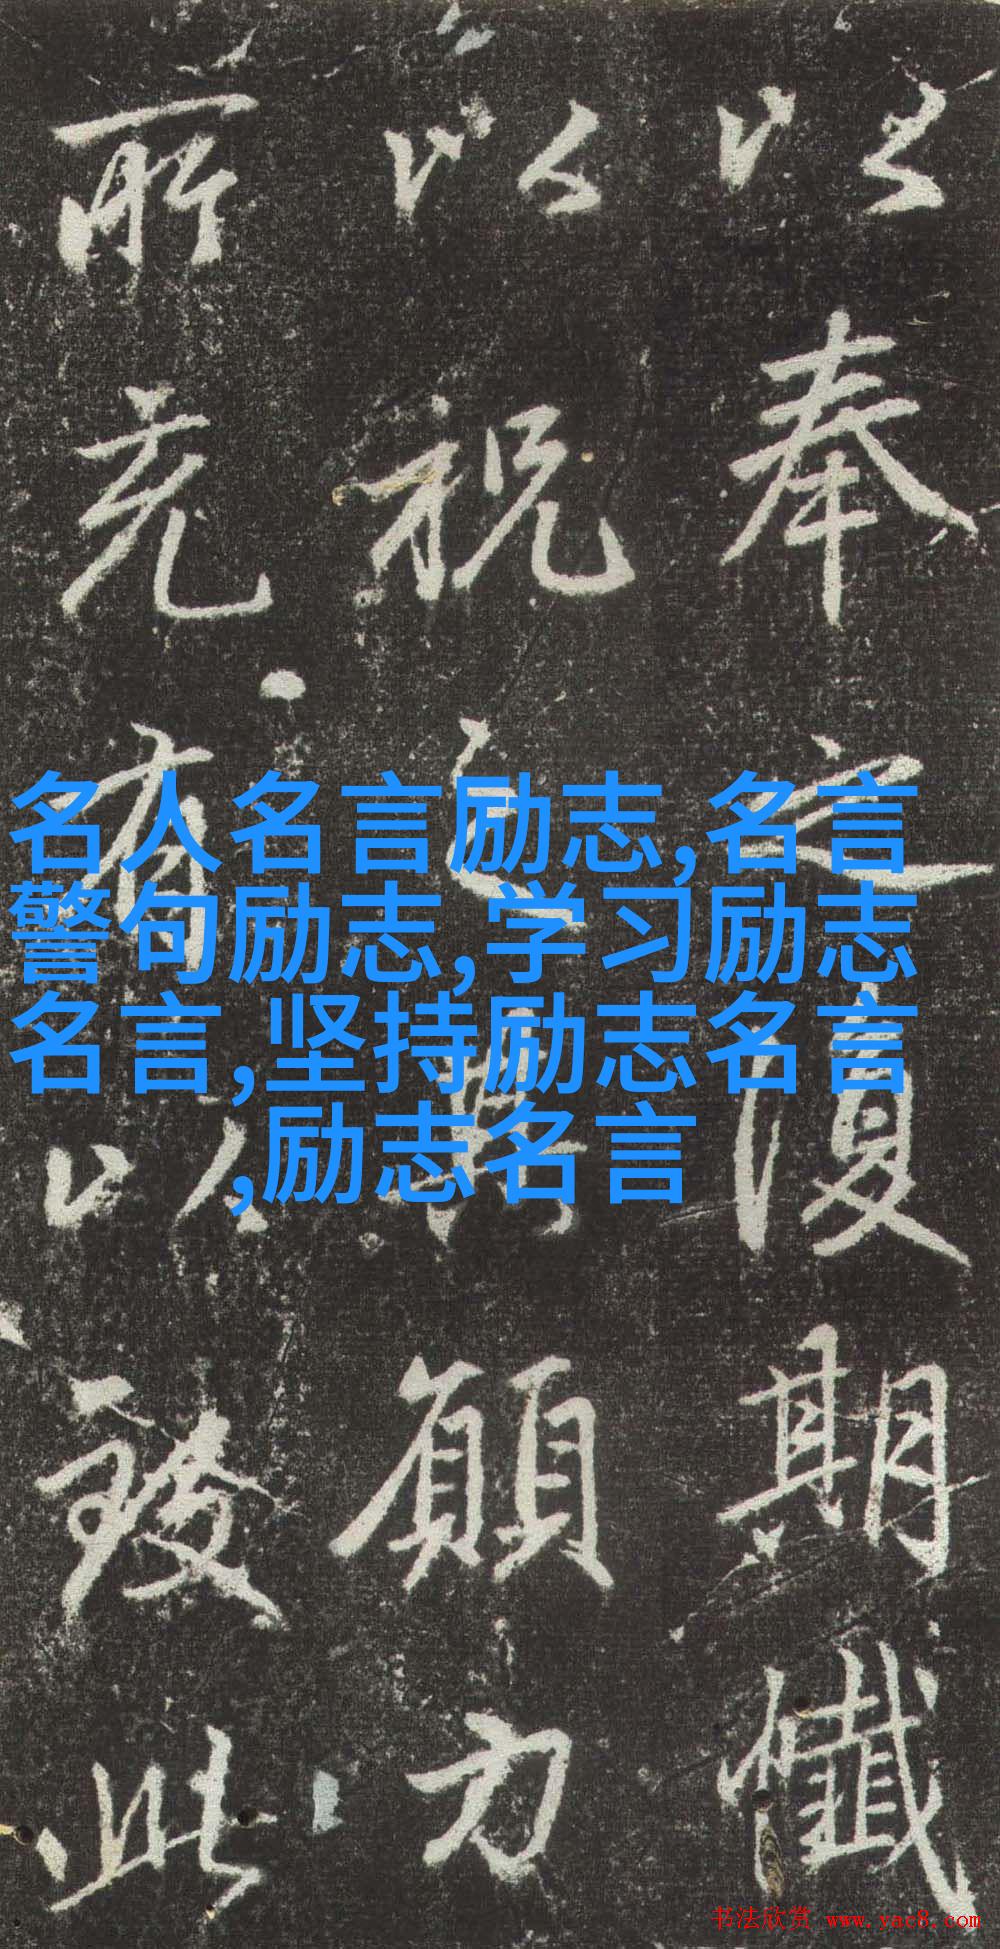 以奉之復期懺
以祝之願力
所有以致此
名人名言励志,名言
警句励志,学习励志
名言,坚持励志名言
,励志名言
书法欣赏 www.yac8.com